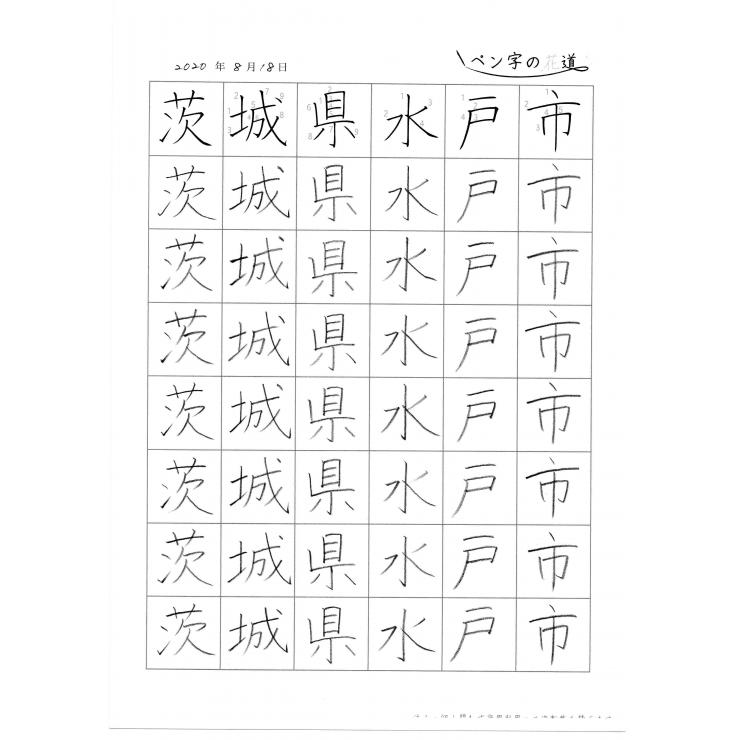 2020 年 8 月 18 日
ペン字の花道
茨城県水戸市
茨城県水戸市
茨城県水戸市
茨城県水戸市
茨城県水戸市
茨城県水戸市
茨城県水戸市
茨城県水戸市